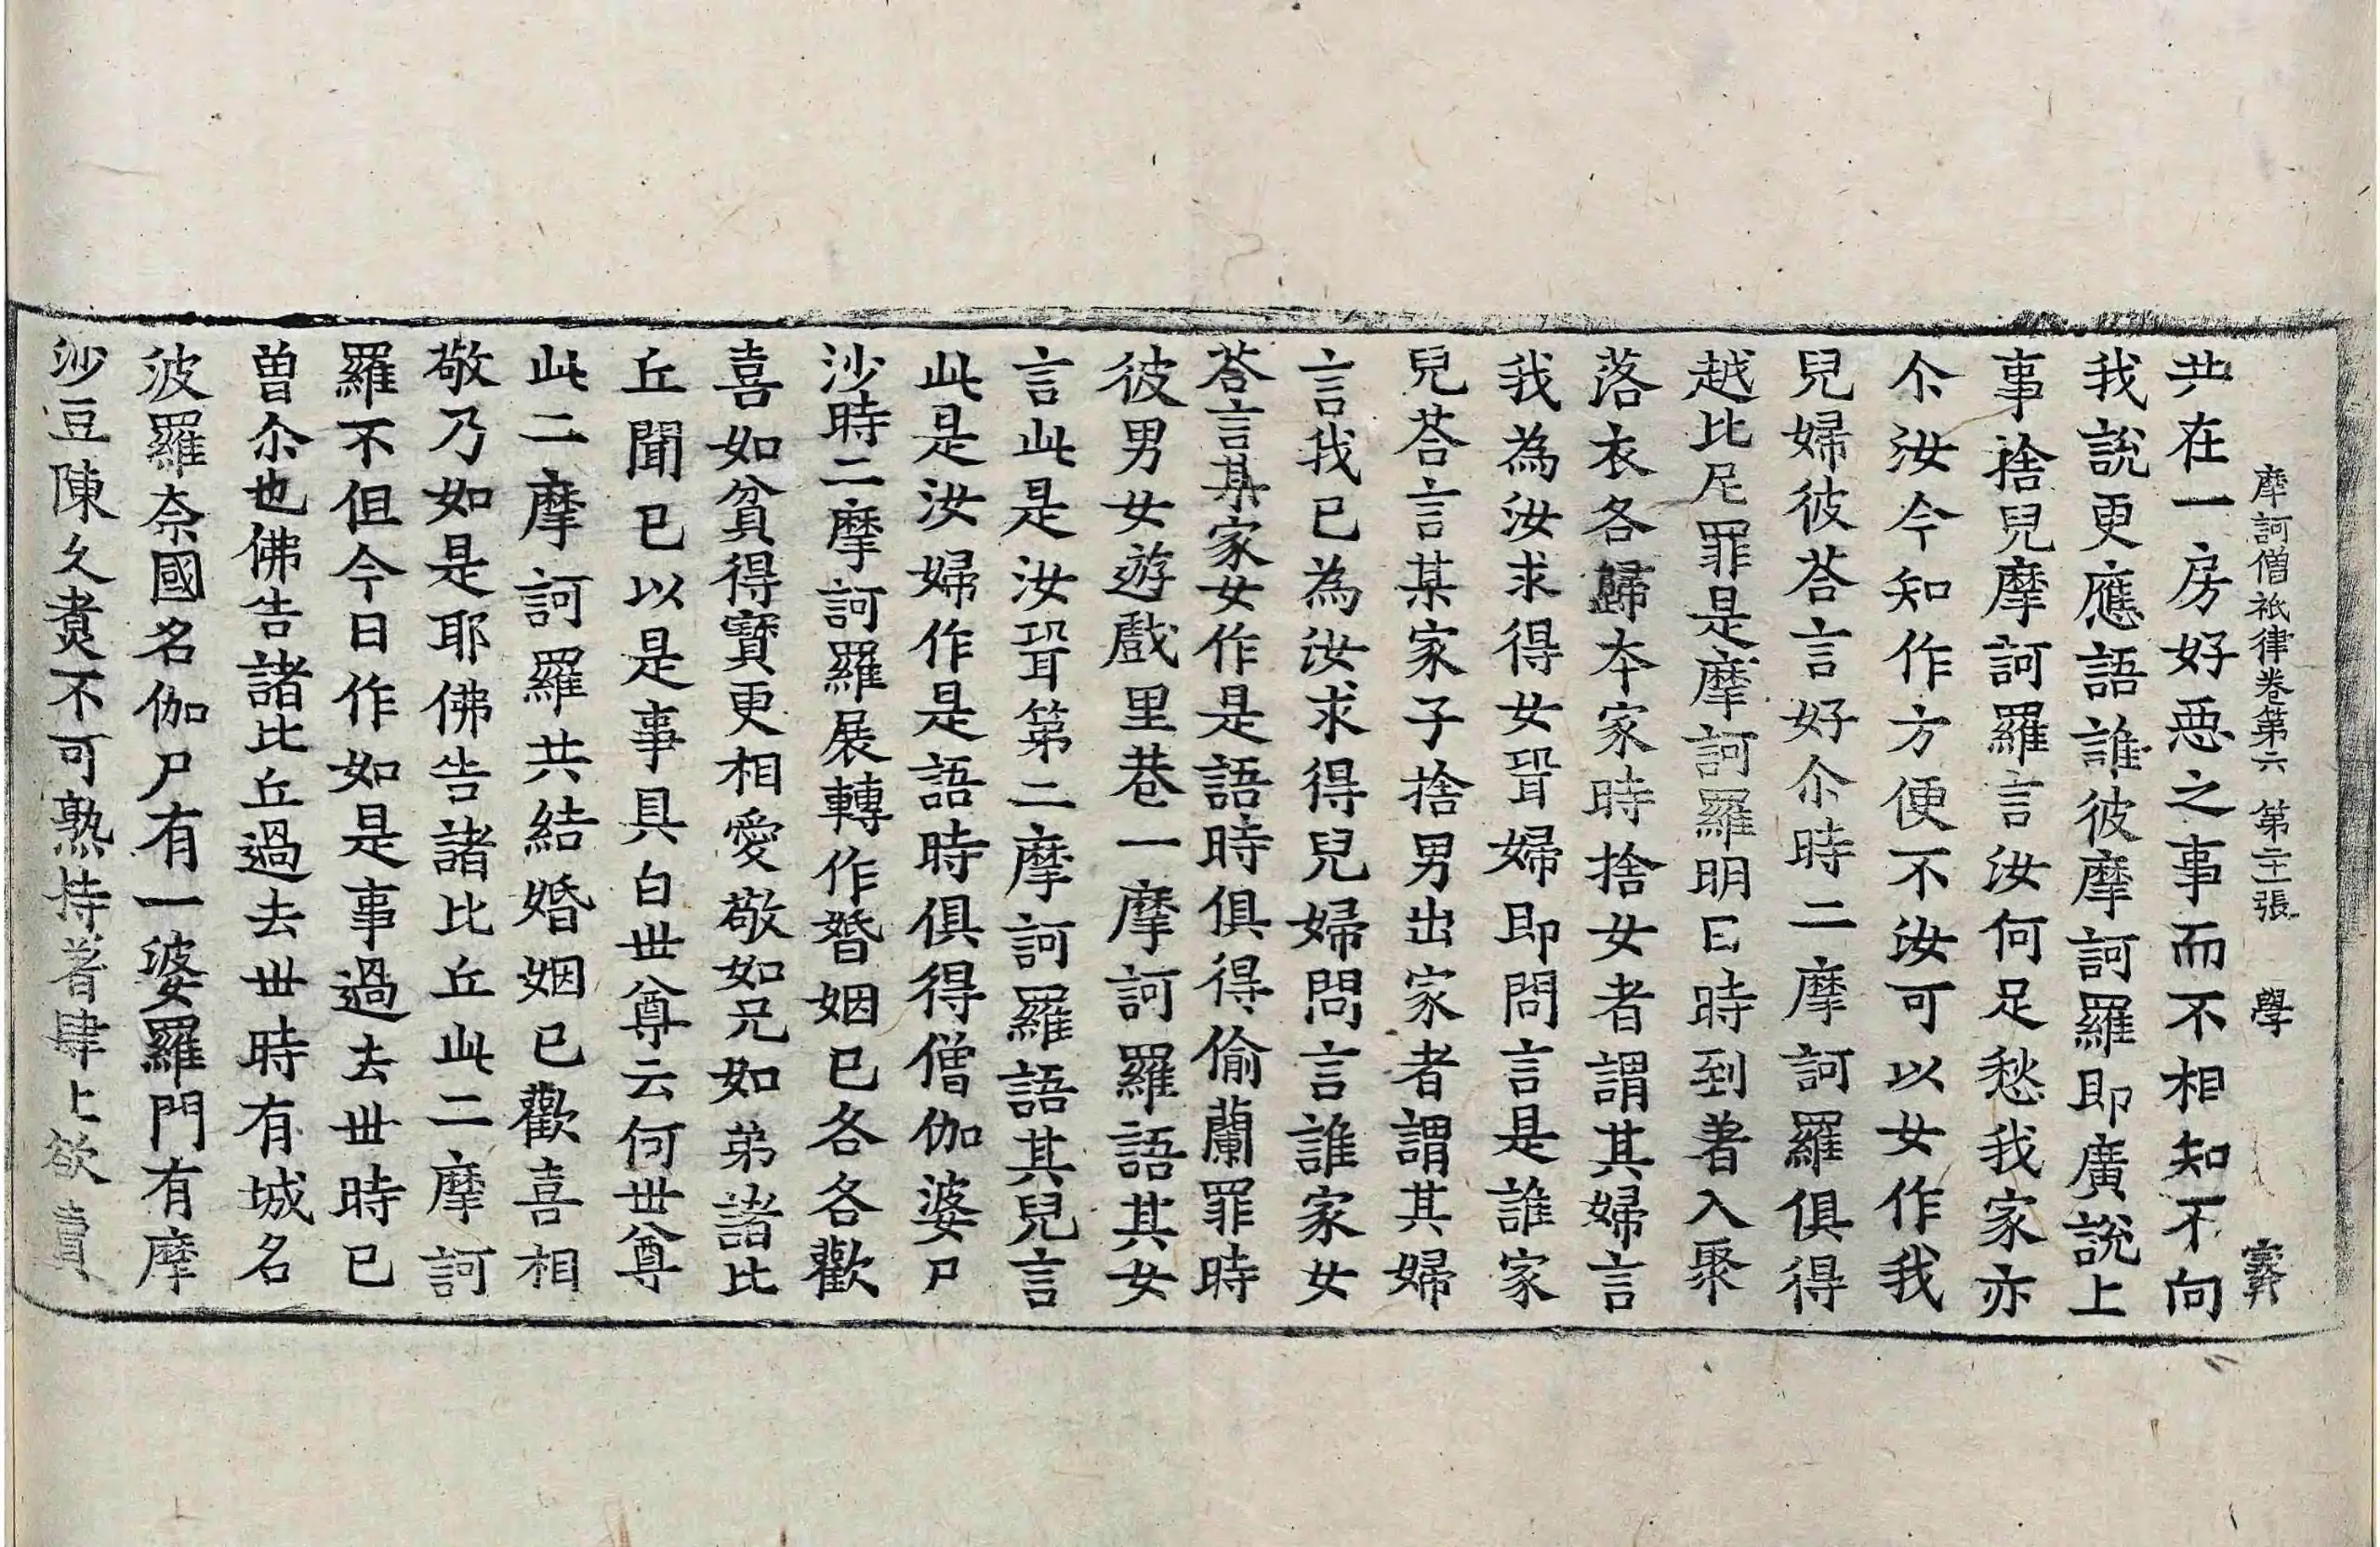 摩訶僧祇律卷第六 第二十一張 學
共在一房好惡之事而不相知不向
我說更應語誰彼摩訶羅即廣說上
事捨兒摩訶羅言汝何足愁我家亦
尒汝今知作方便不汝可以女作我
兒婦彼荅言好尒時二摩訶羅俱得
越比尼罪是摩訶羅明日時到著入聚
落衣各歸本家時捨女者謂其婦言
我為汝求得女聟婦即問言是誰家
兒荅言某家子捨男出家者謂其婦
言我已為汝求得兒婦問言誰家女
荅言某家女作是語時俱得偷蘭罪時
彼男女遊戲里巷一摩訶羅語其女
言此是汝聟第二摩訶羅語其兒言
此是汝婦作是語時俱得僧伽婆尸
沙時二摩訶羅展轉作婚姻已各各歡
喜如貧得寶更相愛敬如兄如弟諸比
丘聞已以是事具白世尊云何世尊
此二摩訶羅共結婚姻已歡喜相
敬乃如是耶佛告諸比丘此二摩訶
羅不但今日作如是事過去世時已
曾尒也佛告諸比丘過去世時有城名
波羅奈國名伽尸有一婆羅門有摩
沙豆陳久煑不可熟持著肆上欲賣